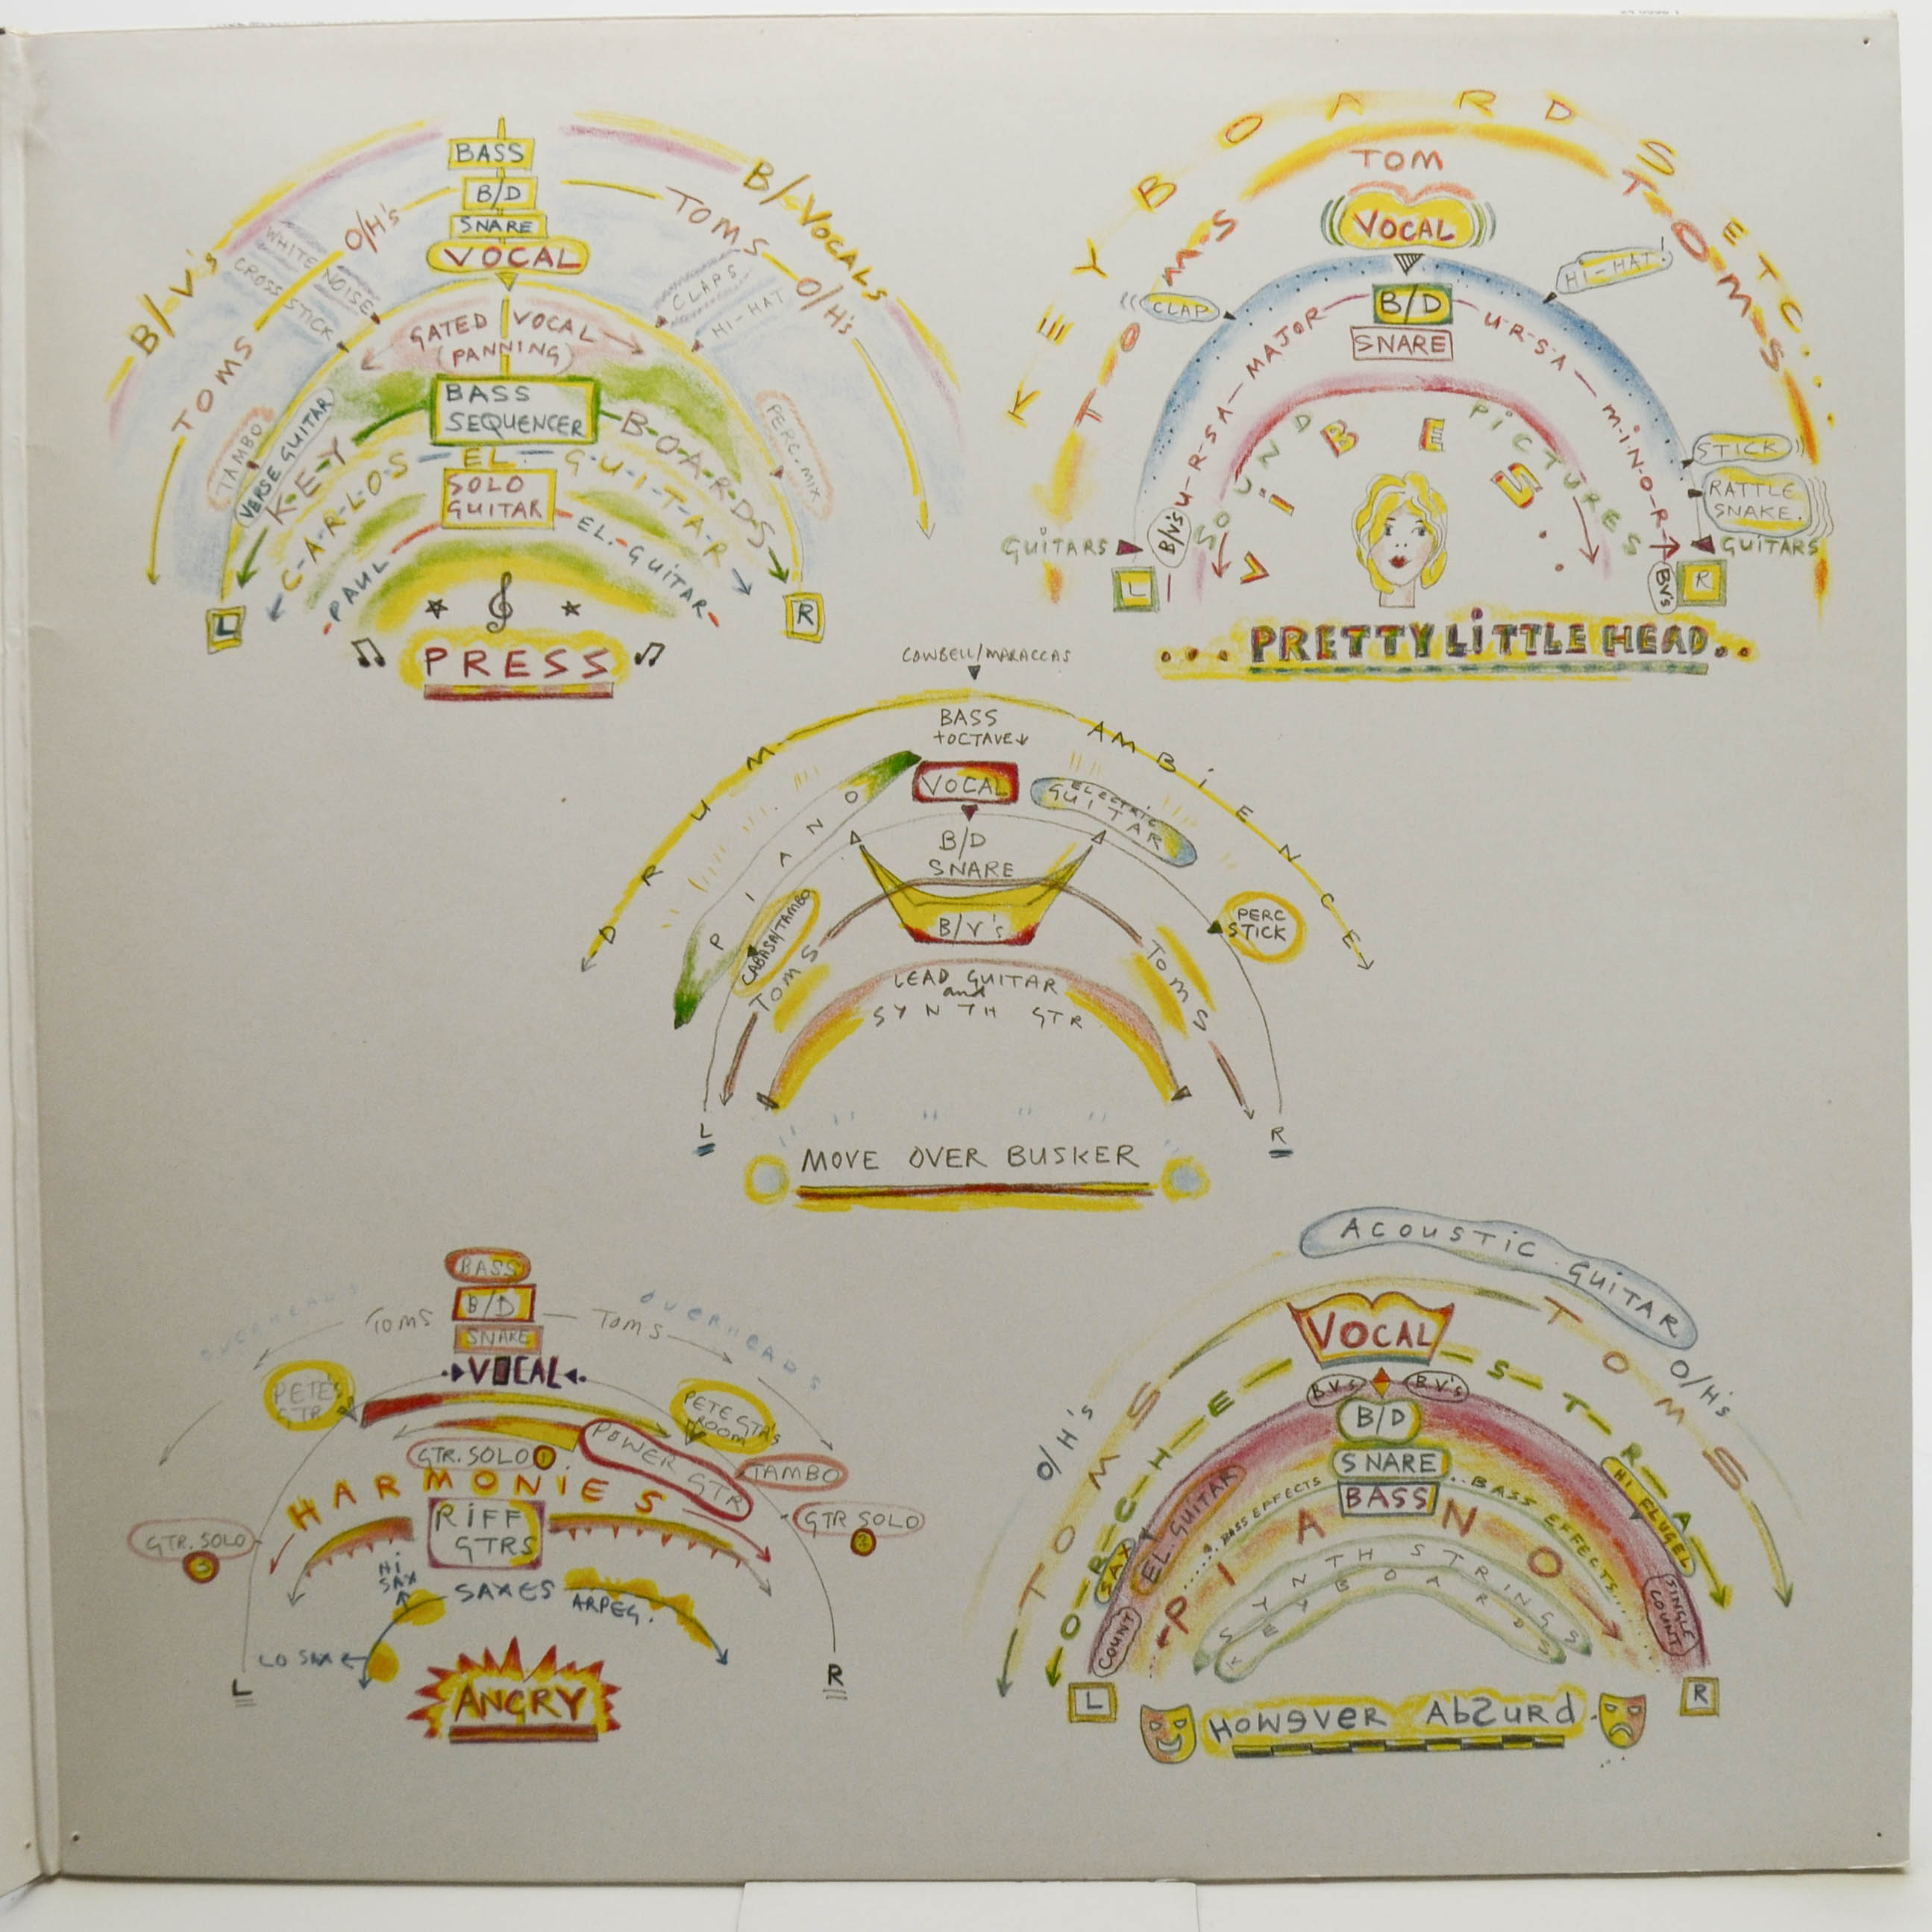 BASS
B/D
SNARE
VOCAL
B/-V's
B/-VOCALS
TOMS
O/H's
TOMS
O/H's
WHITE NOISE
CROSS STICK
CLAPS
HI-HAT
GATED VOCAL
(PANNING)
TAMBO
VERSE GUITAR
PERC. MIX
BASS
SEQUENCER
K-E-Y
B-O-A-R-D-S
C-A-R-L-O-S - EL. - G-U-I-T-A-R
SOLO
GUITAR
PAUL
EL.-GUITAR
L
R
PRESS
KEYBOARDS ETC...
TOM
T-O-M-S
T-O-M-S
VOCAL
CLAP
HI-HAT!
B/D
SNARE
U-R-S-A-MAJOR
U-R-S-A-M-I-N-O-R
STICK
RATTLE
SNAKE.
SOUND PICTURES
VIBES.
GUITARS
B/V's
BV's
GUITARS
L
R
...PRETTY LiTTLE HEAD..
COWBELL/MARACCAS
BASS
+OCTAVE↓
DRUM AMBiENCE
VOCAL
PIANO
ELECTRIC
GUITAR
B/D
SNARE
B/V's
CABASA/TAMBO
PERC
STICK
TOMS
TOMS
LEAD GUITAR
and
SYNTH GTR
L
R
MOVE OVER BUSKER
BASS
B/D
SNARE
OVERHEADS
OVERHEADS
TOMS
TOMS
VOCAL
PETE's
GTR
PETE GTR's
ROOM
GTR. SOLO 1
POWER GTR
TAMBO
HARMONiES
GTR. SOLO
3
GTR SOLO
2
RiFF
GTRS
Hi
SAX
SAXES
ARPEG.
LO SAX
L
R
ANGRY
ACOUSTiC GUiTAR
VOCAL
TOMS
TOMS
O/H's
O/H's
O-R-C-H-E-S-T-R-A
BV's
BV's
B/D
SNARE
BASS
BASS EFFECTS
..BASS EFFECTS...
EL. GUITAR
SAX
COUNT
HI FLUGEL
SINGLE
COUNT
PIANO
SYNTH STRINGS
KEYBOARDS
L
R
However AbSurd.